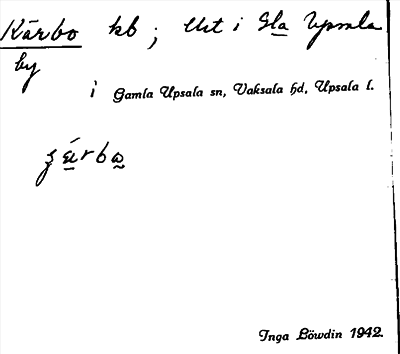 Kärbo kb; Utt i Gla Upsala
by
i Gamla Upsala sn, Vaksala hd, Upsala l.
Inga Löwdin 1942.